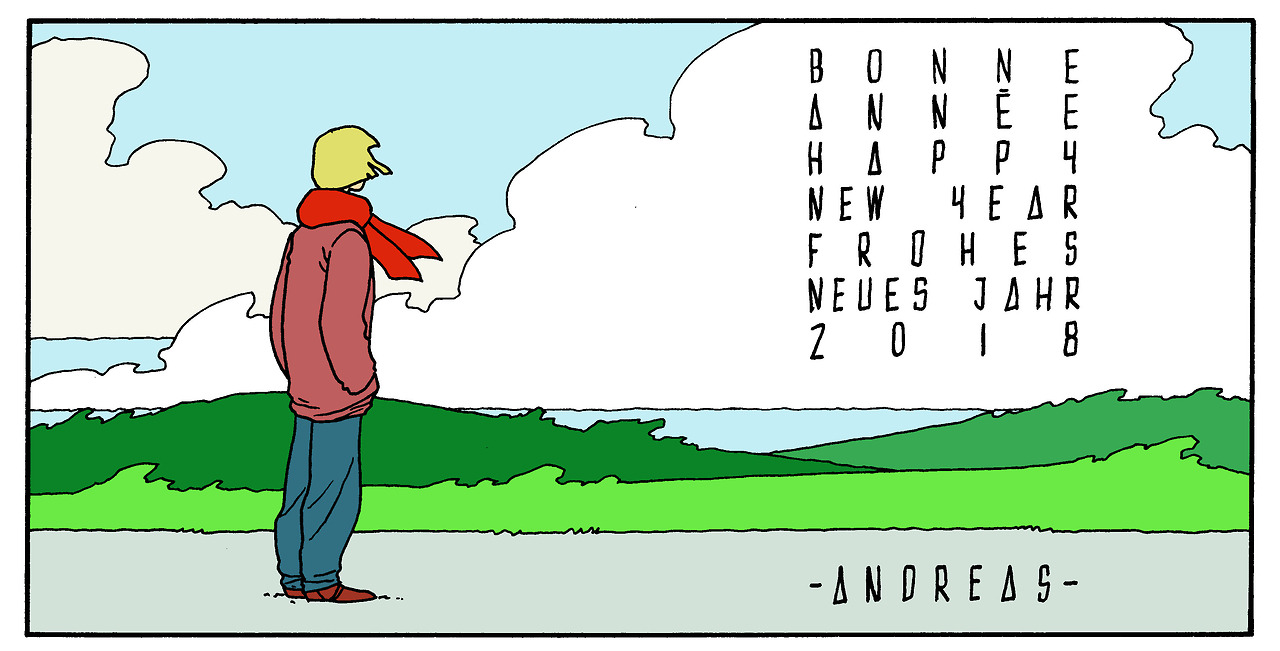 BONNE
ANNĒE
HAPPY
NEW YEAR
FROHES
NEUES JAHR
2018
-ANDREAS-